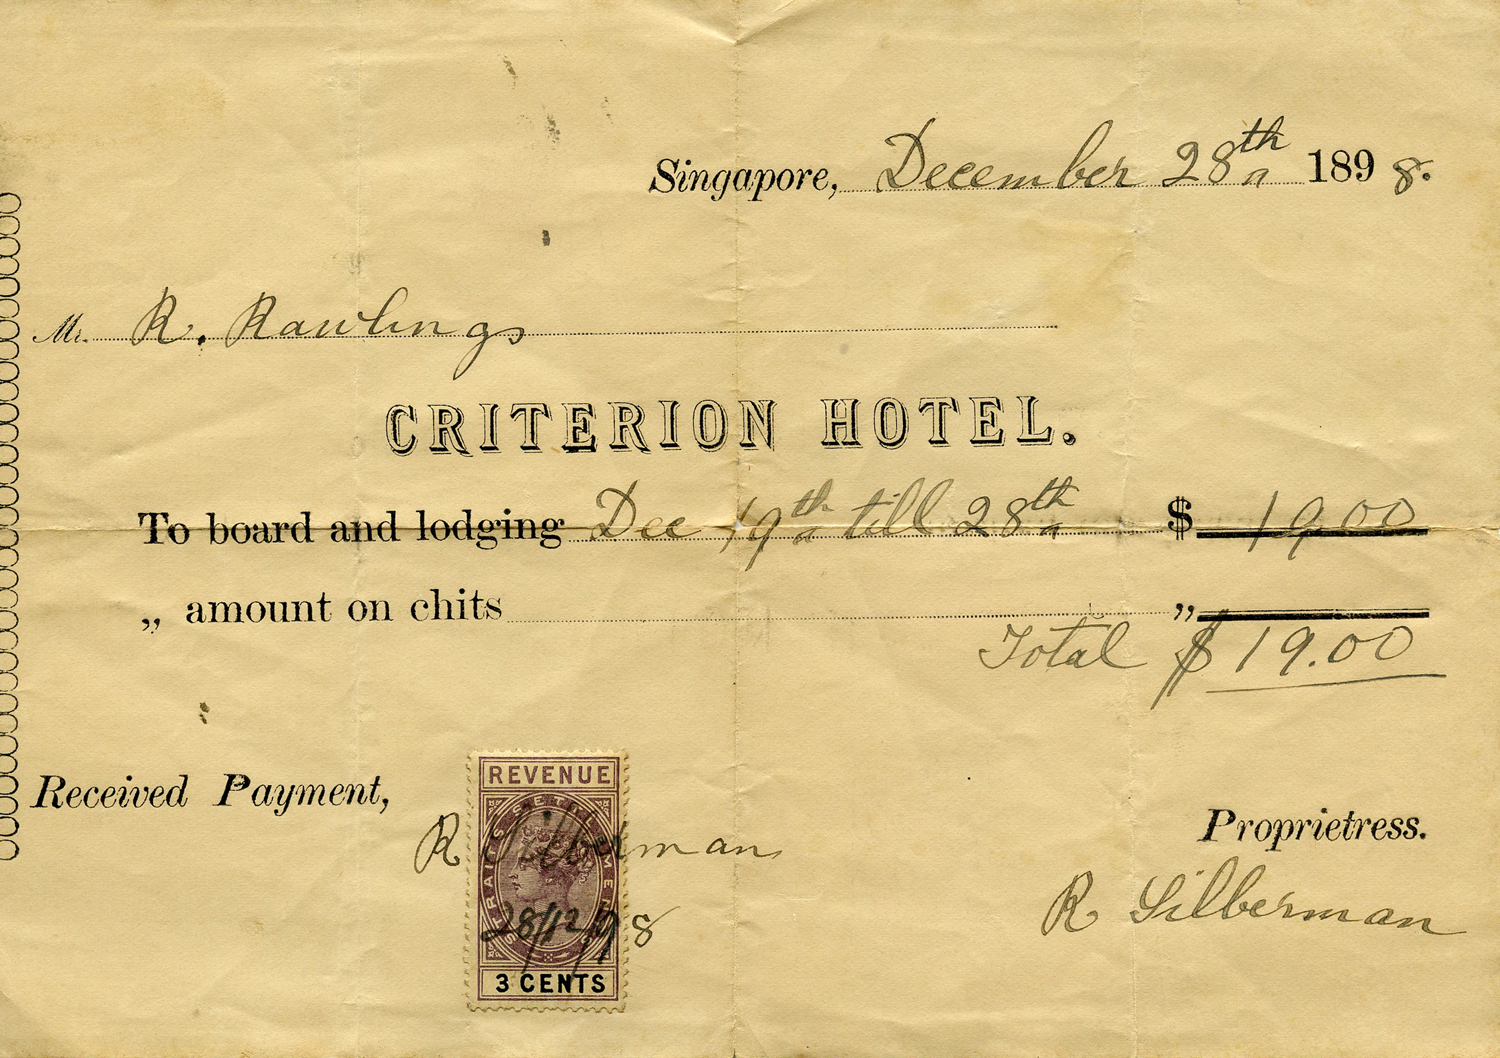 Singapore, December 28th 1898.
Mr. R. Rawlings
CRITERION HOTEL.
To board and lodging Dec 19th till 28th $ 19.00
„ amount on chits „
Total $ 19.00
Received Payment,
REVENUE
STRAITS SETTLEMENTS
R Silberman
28/12/98
3 CENTS
Proprietress.
R Silberman